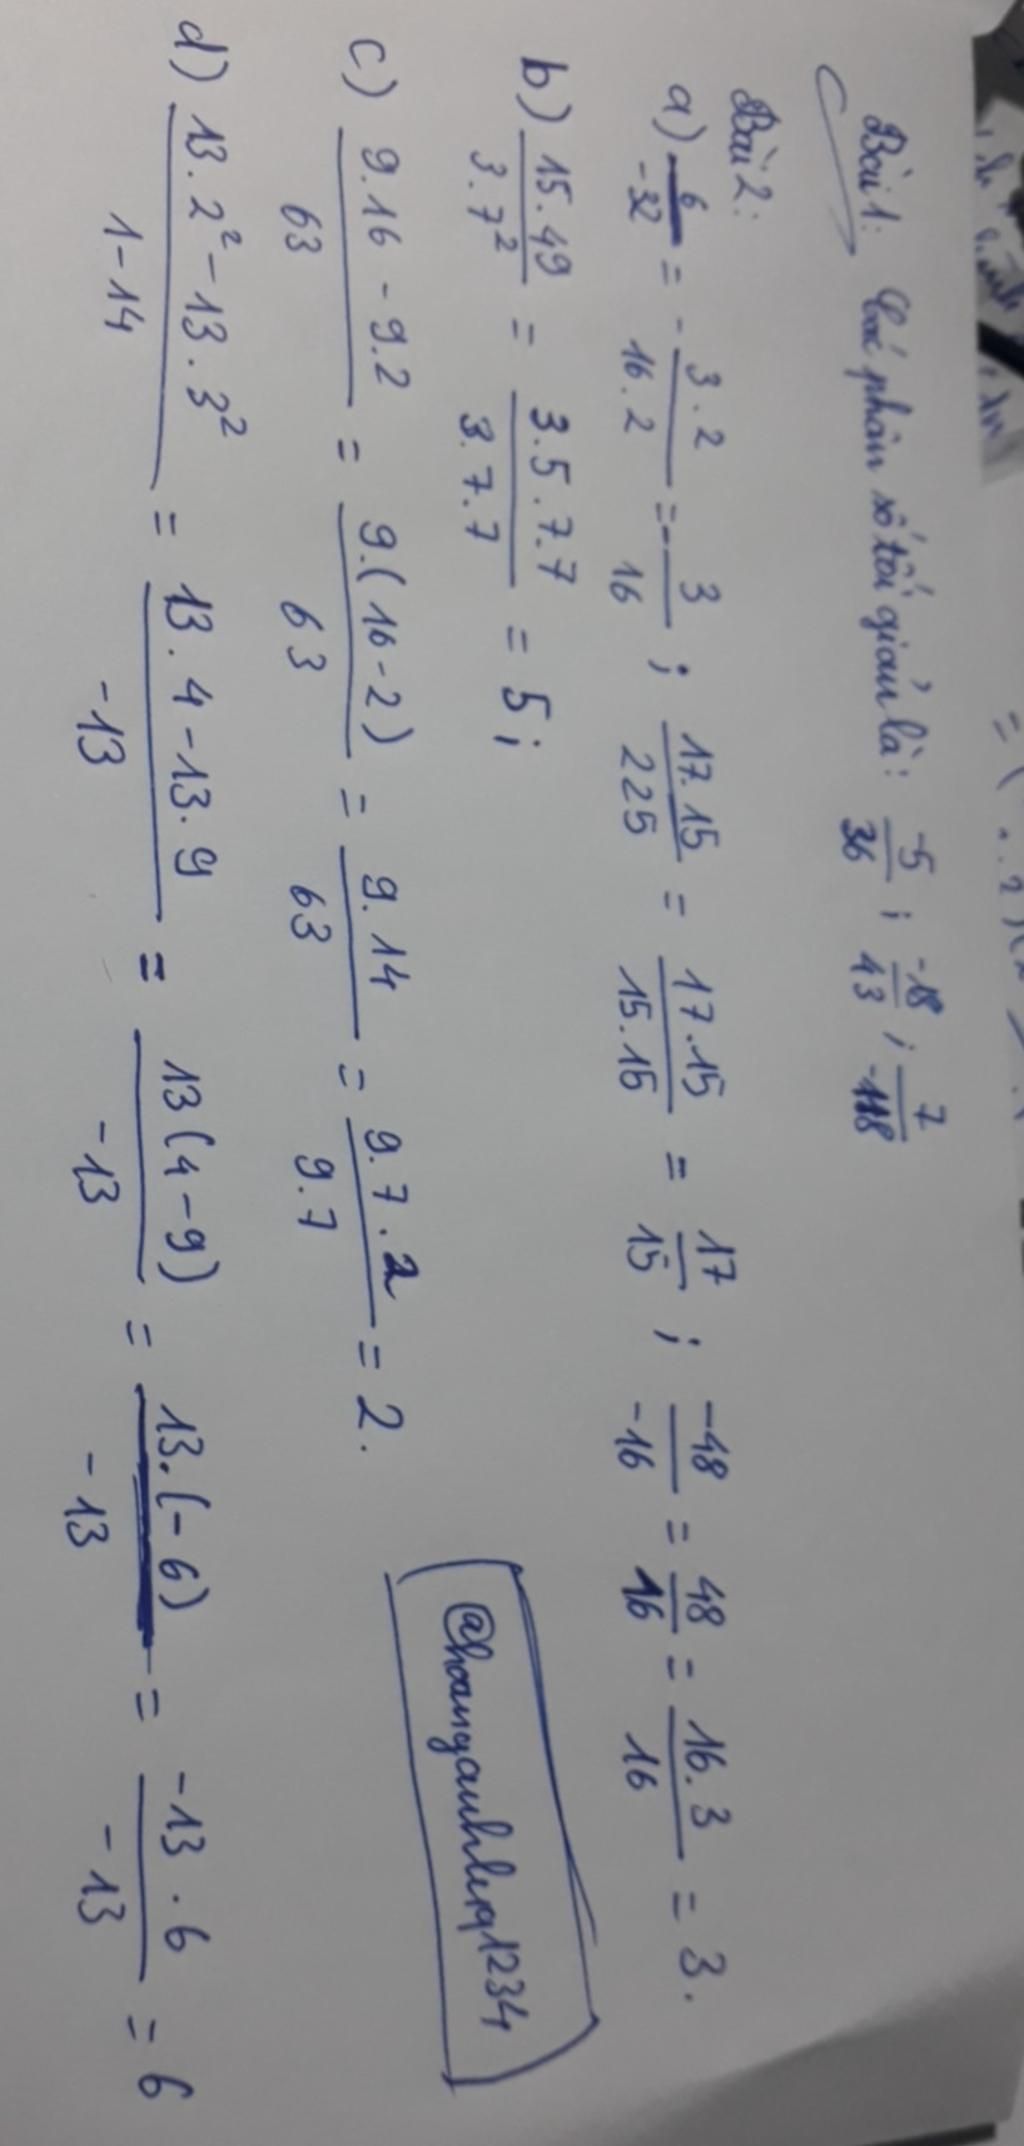 Bài 1: Các phân số tối giản là: -5/36 ; -18/43 ; 7/-118
Bài 2:
a) 6/-32 = - 3.2/16.2 = - 3/16 ; 17.15/225 = 17.15/15.15 = 17/15 ; -48/-16 = 48/16 = 16.3/16 = 3.
b) 15.49/3.7² = 3.5.7.7/3.7.7 = 5 ;
c) 9.16 - 9.2/63 = 9.(16-2)/63 = 9.14/63 = 9.7.2/9.7 = 2.
@hoanganhleq1234
d) 13.2² - 13.3²/1-14 = 13.4 - 13.9/-13 = 13(4-9)/-13 = 13.(-6)/-13 = -13.6/-13 = 6